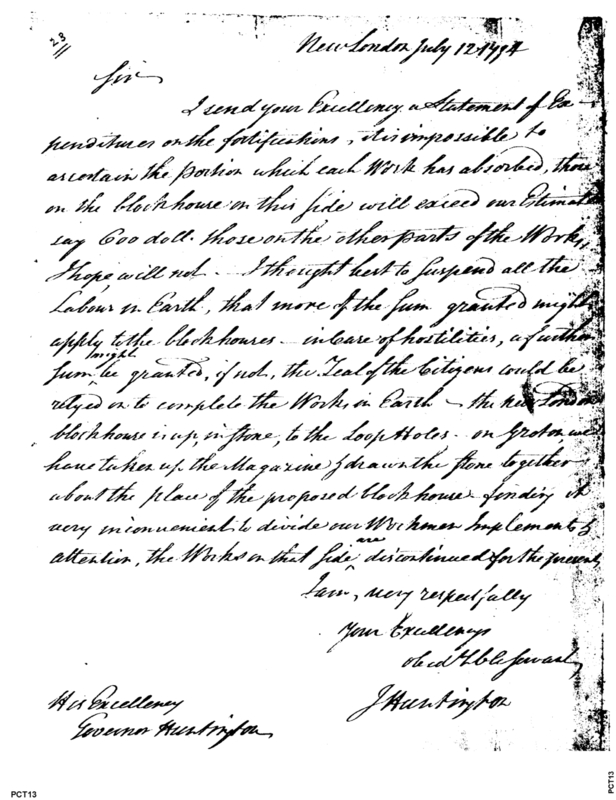 23
New London July 12 1794
Sir
I send your Excellency a Statement of Ex-
penditures on the fortifications, it is impossible to
ascertain the portion which each Work has absorbed, those
on the blockhouse on this side will exceed our Estimate
say 600 doll. those on the other parts of the Works,
I hope, will not - I thought best to suspend all the
Labour in Earth, that more of the sum granted might
apply to the blockhouses - in case of hostilities, a further
might
sum be granted, if not, the Zeal of the Citizens could be
relyed on to complete the Works in Earth - the new London
blockhouse is up, in stone, to the Loop Holes - on Groton, we
have taken up the Magazine & drawn the stone together
about the place of the proposed blockhouse - finding it
very inconvenient to divide our Workmen Implements &
are
attention, the Works on that side discontinued for the present
I am, very respectfully
Your Excellencys
obedt Servant
J Huntington
His Excellency
Governor Huntington
PCT13
PCT13